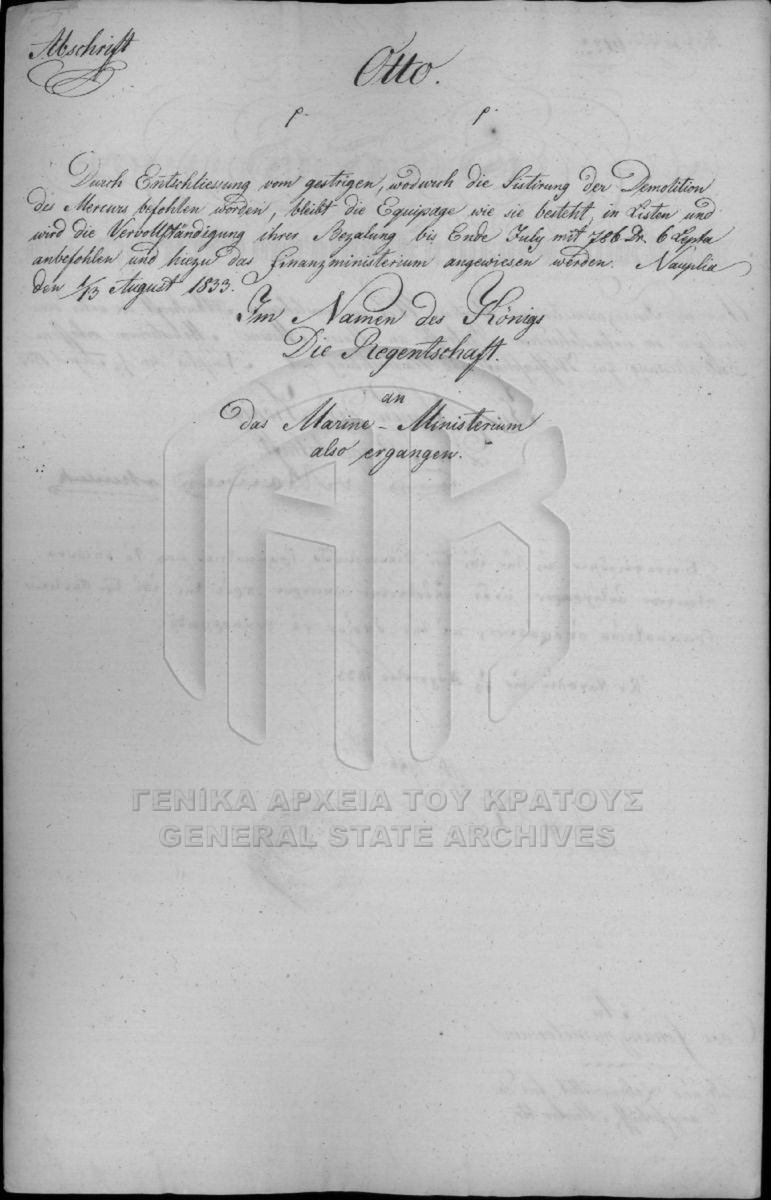 Abschrift
Otto.
p. p.
Durch Entschliessung vom gestrigen, wodurch die Sistirung der Demolition
des Mercurs befohlen worden, bleibt die Equipage wie sie besteht, in Listen und
wird die Vervollständigung ihrer Bezalung bis Ende July mit 786 Dr. 6 Lepta
anbefohlen und hiezu das Finanzministerium angewiesen werden. Nauplia
den 1/13 August 1833.
Im Namen des Königs
Die Regentschaft.
an
das Marine-Ministerium
also ergangen.
ΓΕΝΙΚΑ ΑΡΧΕΙΑ ΤΟΥ ΚΡΑΤΟΥΣ
GENERAL STATE ARCHIVES